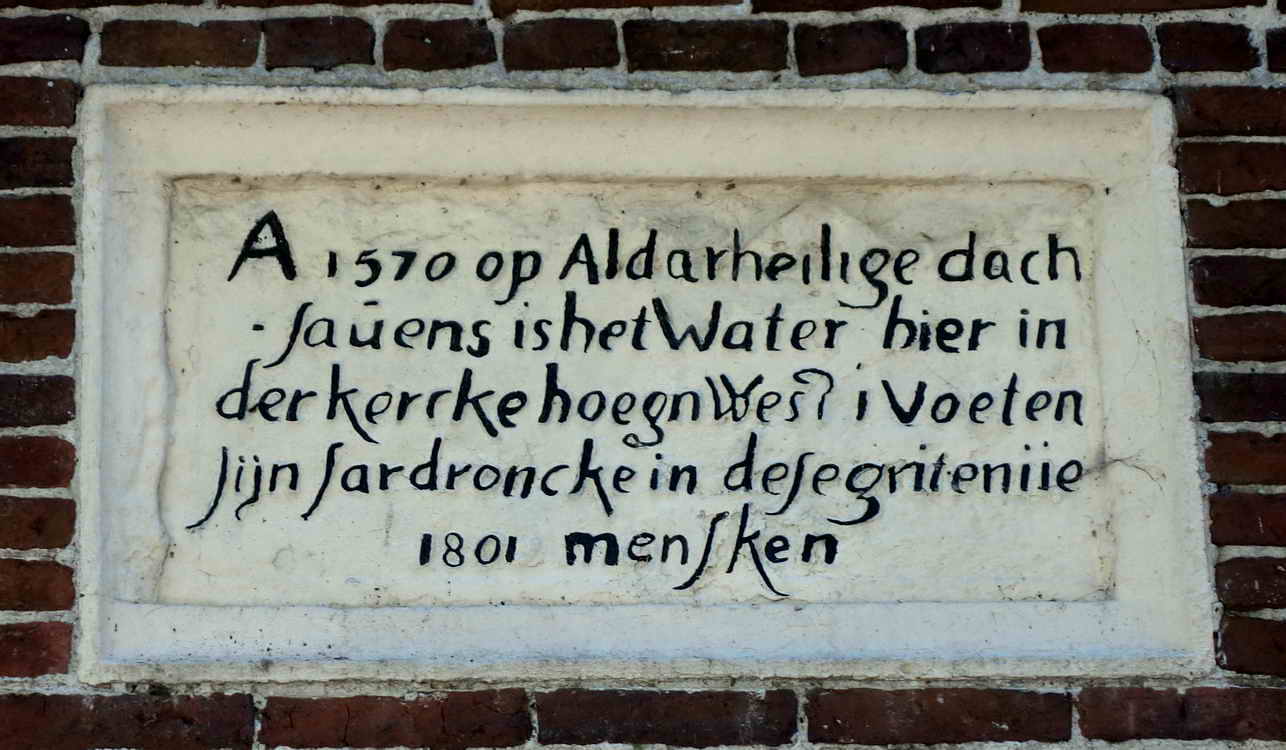 A 1570 op Aldarheilige dach
·saūens ishet Water hier in
der kercke hoegn West i Voeten
sijn sardroncke in desegriteniie
1801 mensken